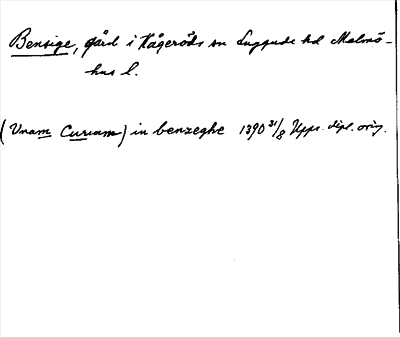 Bensige, gård i Kågeröds sn Luggude hd Malmö-
hus l.
(Vnam Curiam) in benzeghe 1390 31/8 Upps. dipl. orig.